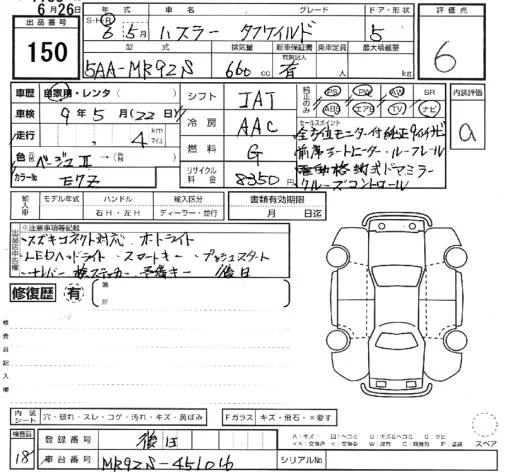 6月26日
出品番号
150
年式 車名 グレード ドア・形状 評価点
S・H・R
6 5月 ハスラー タフワイルド 5
型式 排気量 新車保証書 乗車定員 最大積載量
5AA-MR92S 660cc 有 人 kg
6
車歴 自家用・レンタ
シフト IAT
純正のみ PS PW AW SR
ABS エアB TV ナビ
内装評価
a
車検 9年5月(22日)
冷房 AAC
セールスポイント
全方位モニター付純正9インチナビ
走行 4 km マイル
燃料 G
前席シートヒーター・ルーフレール
電動格納式ドアミラー
色 ベージュII
リサイクル料金 8350円
クルーズコントロール
カラーNo E7Z
輸入車 モデル年式 ハンドル 輸入区分 書類有効期限
年 右H・左H ディーラー・並行 月 日迄
出品店申告欄
※注意事項等記載
スズキコネクト対応 オートライト
LEDヘッドライト スマートキー プッシュスタート
ナンバー 検ステッカー 予備キー 後日
修復歴 有
箇所
検査員記入欄
内装シート 穴・破れ・スレ・コゲ・汚れ・キズ・黄ばみ
Fガラス キズ・飛石・×要す
検査員
18
登録番号 後日
車台番号 MR92S-451016
シリアルNo.
A:キズ U:ヘコミ B:キズ&ヘコミ S:サビ
XX:交換済 X:要交換 W:波有 C:腐食 P:塗装
スペア